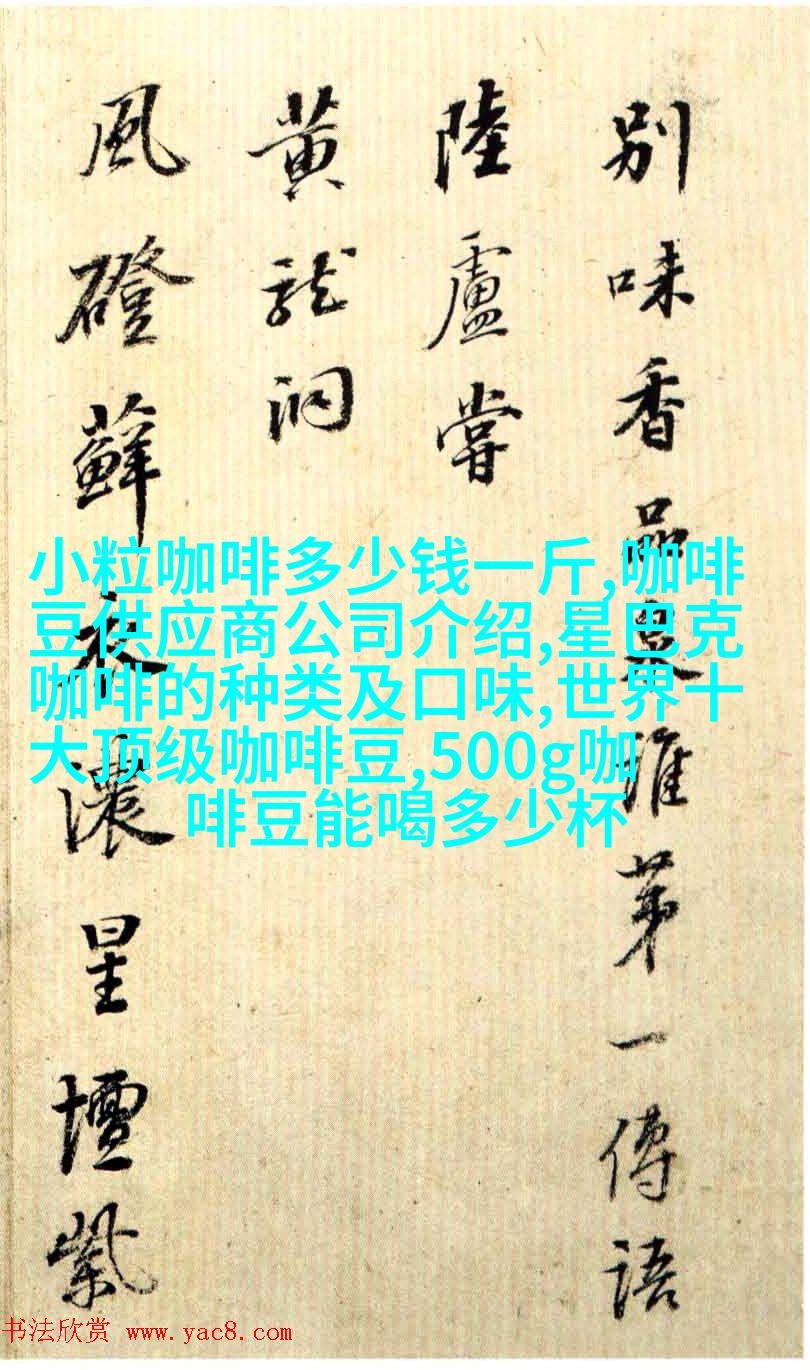 別味香品泉誰第一傳語
陸盧嘗
黃龍洞
風磴蘚衣濃星壇紫
小粒咖啡多少钱一斤,咖啡
豆供应商公司介绍,星巴克
咖啡的种类及口味,世界十
大顶级咖啡豆,500g咖
啡豆能喝多少杯
书法欣赏 www.yac8.com